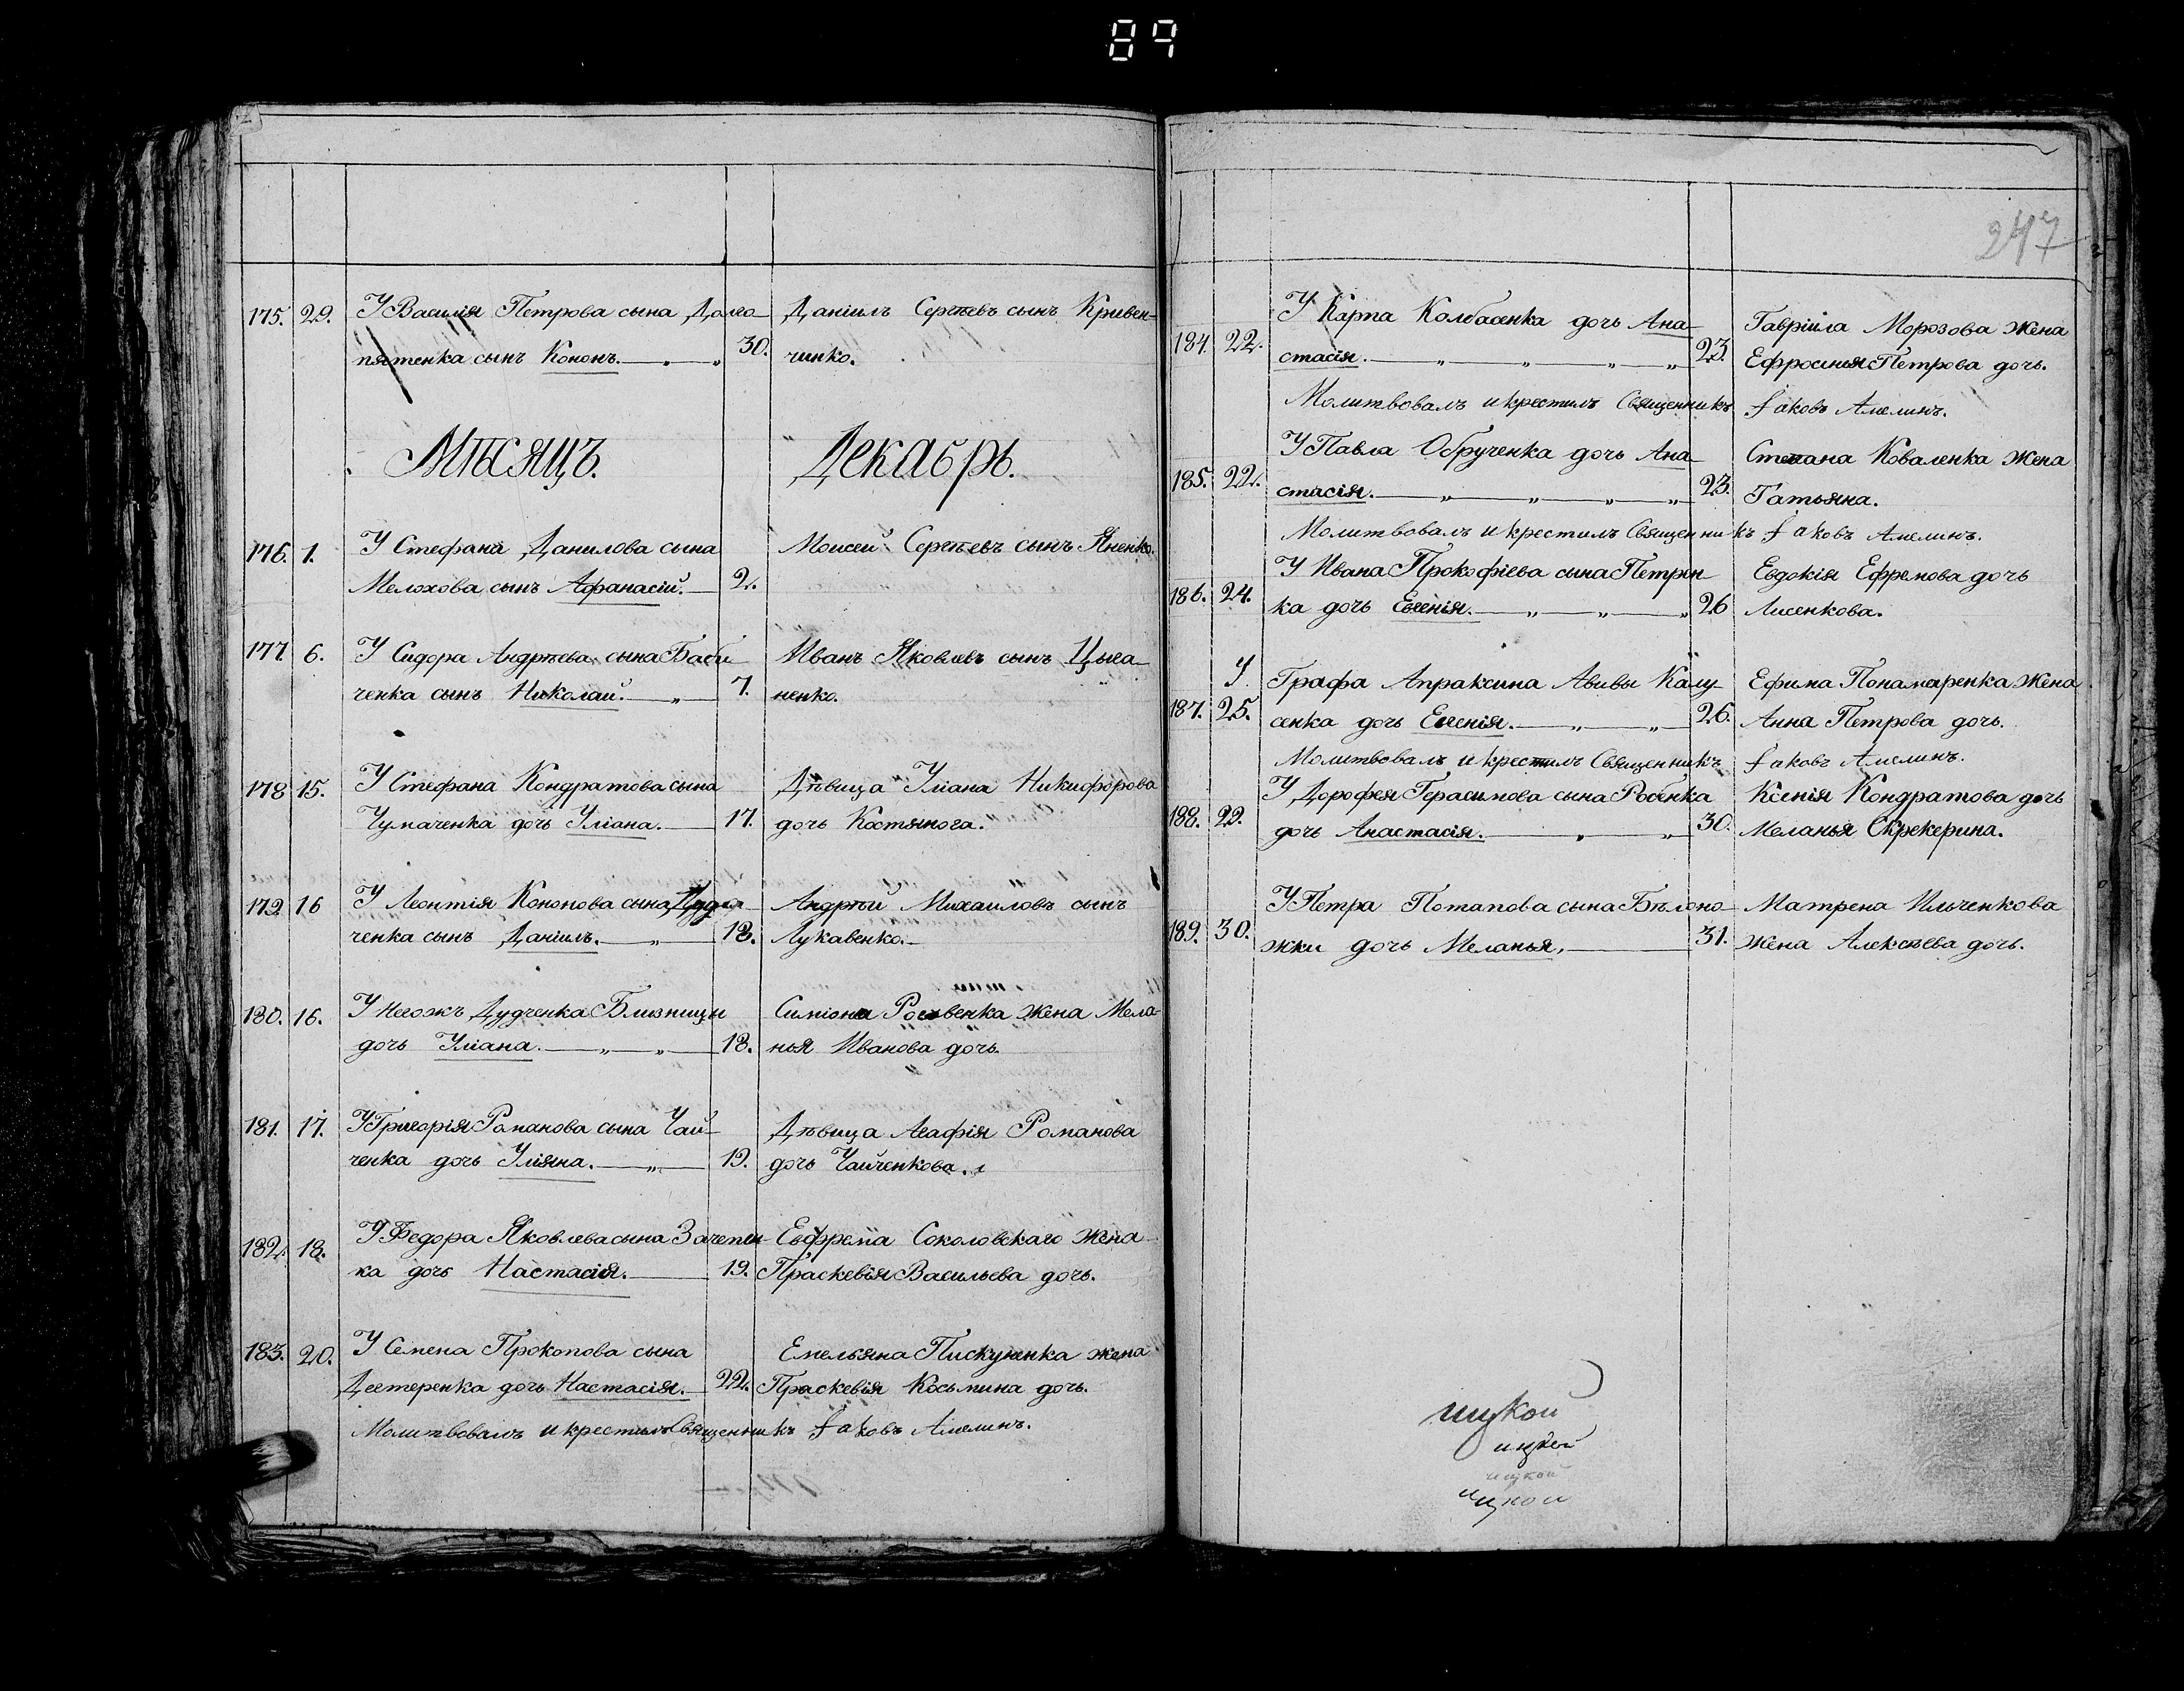 89
175. 29. У Василія Петрова сына Долго- Даніилъ Сергѣевъ сынъ Кривен-
пятенка сынъ Кононъ. 30. чинко.
Мѣсяцъ. Декабрь.
176. 1. У Стефана Данилова сына Моисей Сергѣевъ сынъ Яненко.
Мелохова сынъ Афанасій. 2.
177. 6. У Сидора Андрѣева сына Баби- Иванъ Яковлевъ сынъ Цыга-
ченка сынъ Николай. „ 7. ненко.
178 15. У Стефана Кондратова сына Дѣвица Уліана Никифорова
Чумаченка дочь Уліана. 17. дочь Костянога.
179 16 У Леонтія Кононова сына Андрѣй Михаиловъ сынъ
ченка сынъ Даніилъ. „ 18. Лукавенко.
180. 16. У Негожъ Дудченка Близницы Симіона жена Мела-
дочь Уліана. „ „ 18. нья Иванова дочь.
181. 17. У Григорія Романова сына Чай- Дѣвица Агафія Романова
ченка дочь Уліяна. „ 19. дочь Чайченкова.
182. 18. У Федора Яковлева сына Зачепи- Евфрема Соколовскаго жена
ка дочь Настасія. 19. Праскевія Васильева дочь.
183. 20. У Семена Прокопова сына Емельяна Пискуненка жена
Дегтеренка дочь Настасія. 22. Праскевія Косьмина дочь.
Молитвовалъ и крестилъ Священникъ Іаковъ Амелинъ.
247
184. 22. У Карпа Колбасенка дочь Ана- Гавріила Морозова жена
стасія. „ „ „ „ 23. Ефросинья Петрова дочь.
Молитвовалъ и крестилъ Священникъ Іаковъ Амелинъ.
185. 22. У Павла Обрученка дочь Ана- Степана Коваленка жена
стасія. „ „ „ „ 23. Татьяна.
Молитвовалъ и крестилъ Священникъ Іаковъ Амелинъ.
186. 24. У Ивана Прокофіева сына Петрен- Евдокія Ефремова дочь
ка дочь Евгенія. „ „ „ 26 Лисенкова.
У Графа Апраксина Авивы Калу- Ефима Понамаренка жена
187. 25. сенка дочь Евгенія. „ „ 26. Анна Петрова дочь.
Молитвовалъ и крестилъ Священникъ Іаковъ Амелинъ.
188. 29. У Дорофея Герасимова сына Ксенія Кондратова дочь
дочь Анастасія. „ „ 30. Меланья Скрекерина.
189. 30. У Петра Потапова сына Бѣлоно- Матрена Ильченкова
жки дочь Меланья. 31. жена Алексѣева дочь.
ицкой
ицкой
ицкой
ицкой